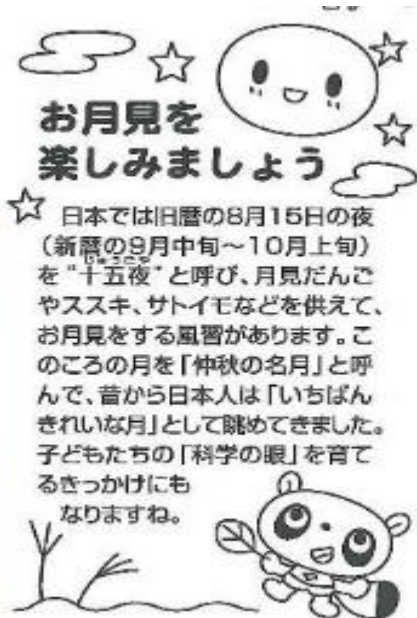 お月見を
楽しみましょう
日本では旧暦の8月15日の夜
(新暦の9月中旬～10月上旬)
を“十五夜”と呼び、月見だんご
やススキ、サトイモなどを供えて、
お月見をする風習があります。こ
のころの月を「仲秋の名月」と呼
んで、昔から日本人は「いちばん
きれいな月」として眺めてきました。
子どもたちの「科学の眼」を育て
るきっかけにも
なりますね。